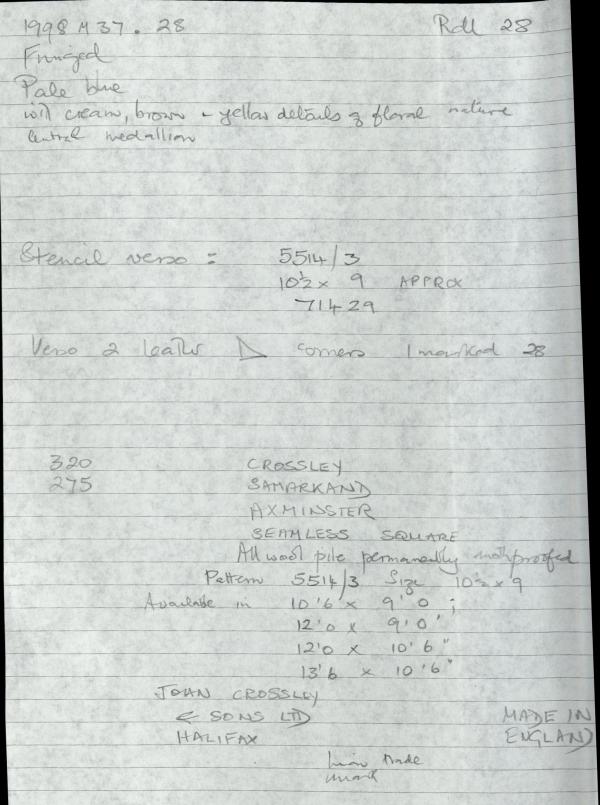 1998 M 37 . 28 Roll 28
Fringed
Pale blue
with cream, brown + yellow details of floral nature
Central medallion
Stencil verso : 5514/3
10½ x 9 APPROX
71429
Verso 2 leather corners 1 marked 28
320 CROSSLEY
275 SAMARKAND
AXMINSTER
SEAMLESS SQUARE
All wool pile permanently mothproofed
Pattern 5514/3 Size 10½ x 9
Available in 10'6 x 9'0 ;
12'0 x 9'0"
12'0 x 10'6"
13'6 x 10'6"
JOHN CROSSLEY
& SONS LTD MADE IN
HALIFAX ENGLAND
Lion trade
mark